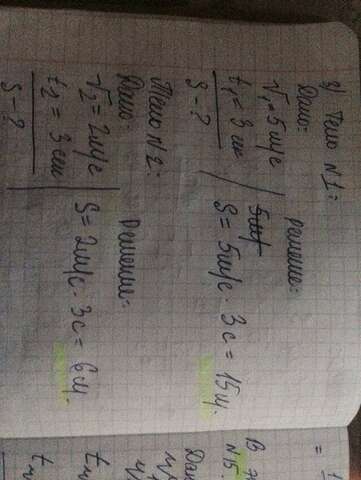 3) Тело N1:
Дано:
V₁=5м/с
t₁=3 см
S-?
решение:
S=5м/с·3с=15м.
Тело N2:
Дано:
V₂=2м/с
t₂=3 см
S-?
Решение:
S=2м/с·3с=6м.
В
N15.
Дан